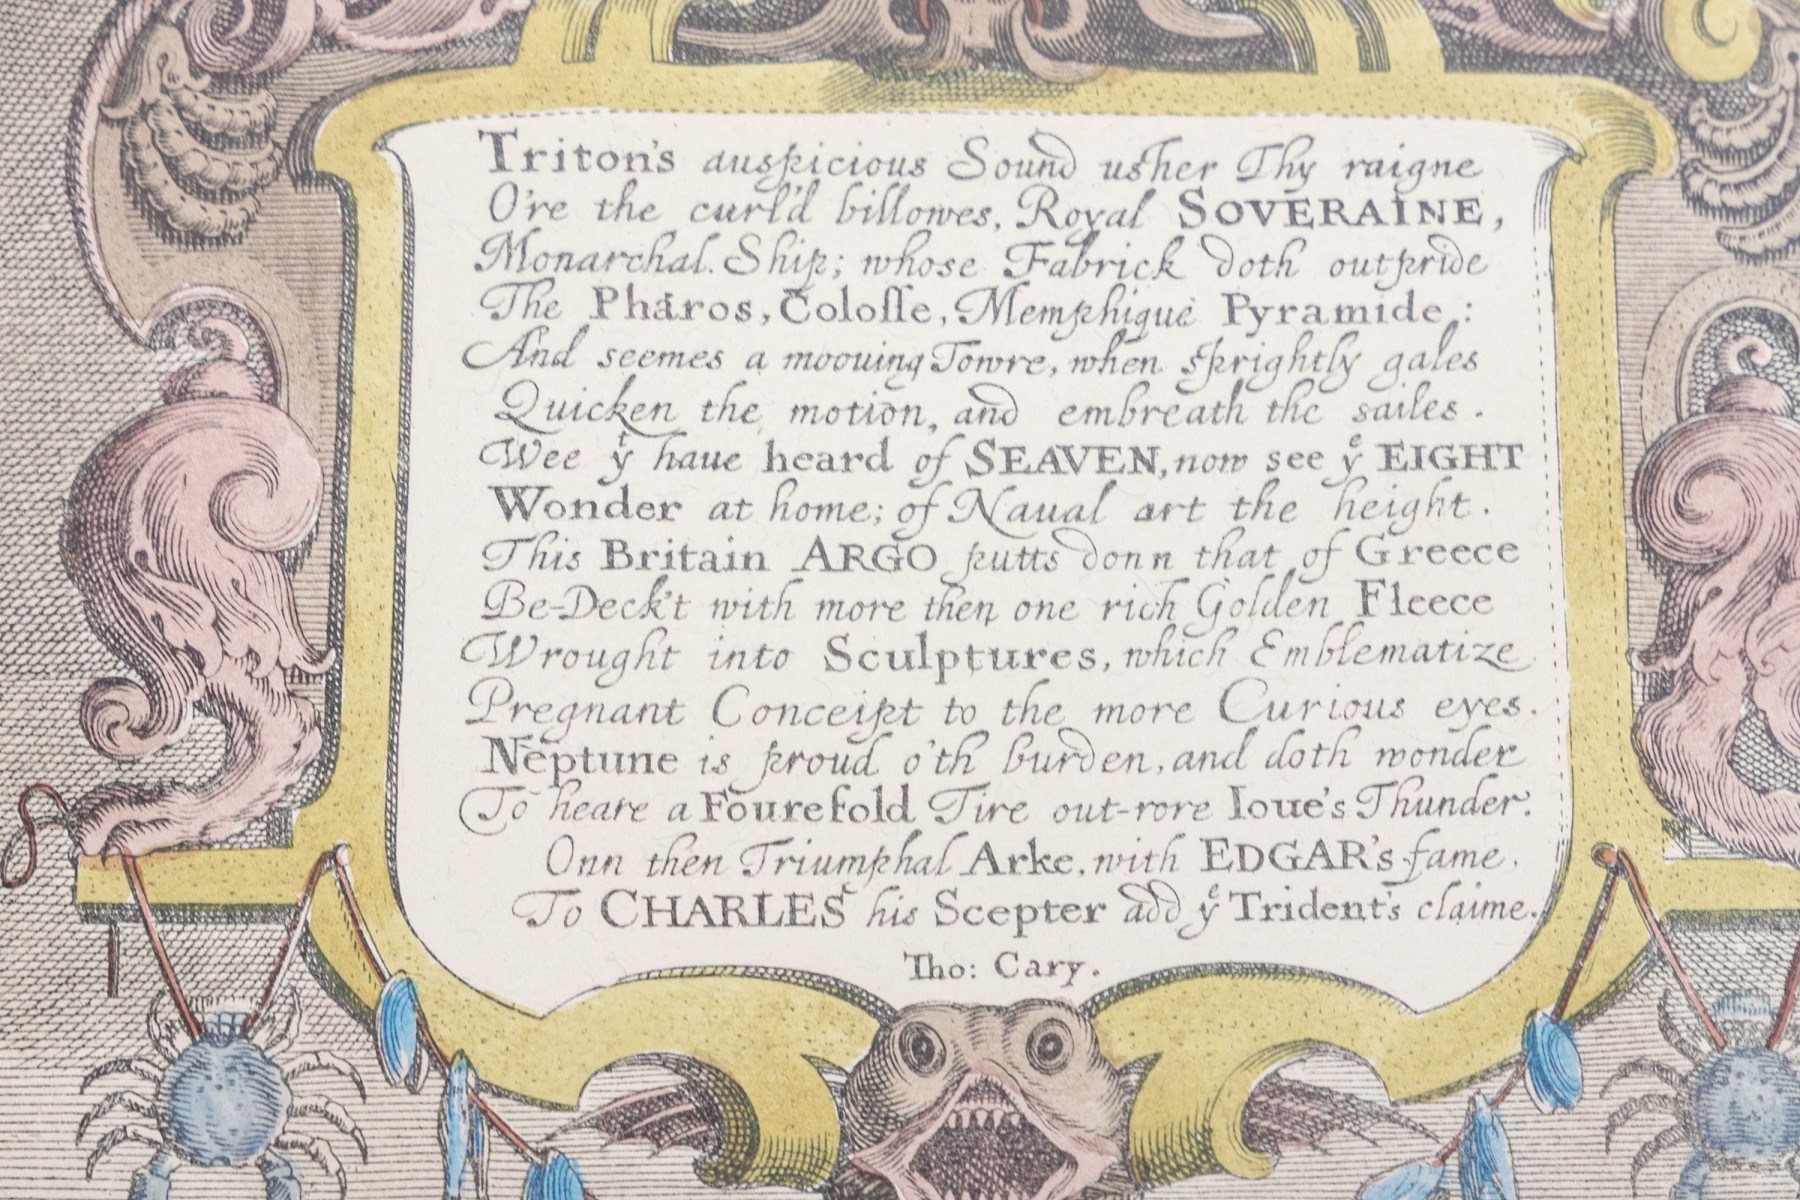 Triton's auspicious Sound usher Thy raigne
O're the curl'd billowes, Royal SOVERAINE,
Monarchal Ship; whose Fabrick doth outpride
The Pharos, Colosse, Memphique Pyramide:
And seemes a moouing Towre, when sprightly gales
Quicken the motion, and embreath the sailes.
Wee yt haue heard of SEAVEN, now see ye EIGHT
Wonder at home; of Naual art the height.
This Britain ARGO putts down that of Greece
Be-Deck't with more then one rich Golden Fleece
Wrought into Sculptures, which Emblematize
Pregnant Conceipt to the more Curious eyes.
Neptune is proud o'th burden, and doth wonder
To heare a Fourefold Fire out-rore Ioue's Thunder.
Onn then Triumphal Arke, with EDGAR's fame,
To CHARLES his Scepter add ye Trident's claime.
Tho: Cary.